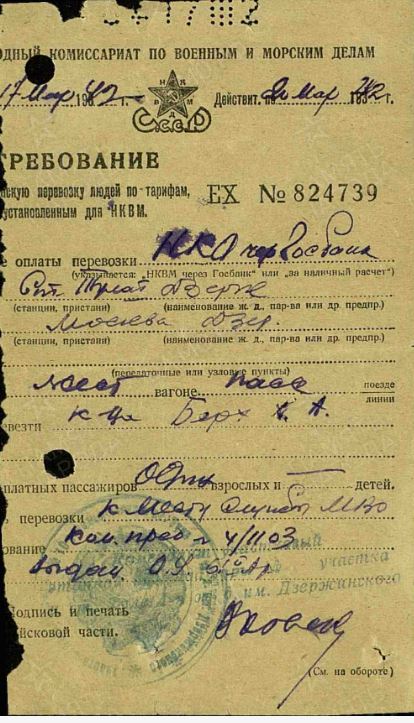 ОДНЫЙ КОМИССАРИАТ ПО ВОЕННЫМ И МОРСКИМ ДЕЛАМ
17 Мар 1942 г.
Действит. по Мар 1942 г.
СССР
ТРЕБОВАНИЕ
нскую перевозку людей по тарифам,
установленным для НКВМ.
ЕХ № 824739
е оплаты перевозки НКО чер Госбанк
(указывается: „НКВМ через Госбанк" или „за наличный расчет")
Дзерж
(станции, пристани) (наименование ж. д., пар-ва или др. предпр.)
Москва Дзер.
(станции, пристани) (наименование ж. д., пар-ва или др. предпр.)
(передаточные или узловые пункты)
жест вагоне пасс поезде
линии
везти Берх А.
платных пассажиров Один взрослых и — детей.
перевозки к месту службы МВО
ование Ком. пред. 4/1103
Выдан
участка
им. Дзержинского
Подпись и печать
йсковой части.
(См. на обороте)